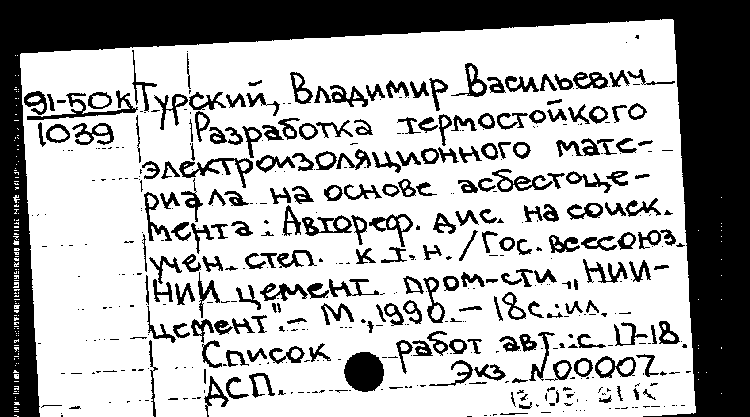 91-50к Турский, Владимир Васильевич
1039 Разработка термостойкого
электроизоляционного мате-
риала на основе асбестоце-
мента: Автореф. дис. на соиск.
учен. степ. к.т.н. / Гос. всесоюз.
НИИ цемент. пром-сти „НИИ-
цемент". - М., 1990. - 18с.: ил.
Список работ авт.: с. 17-18.
ДСП. Экз N00007.